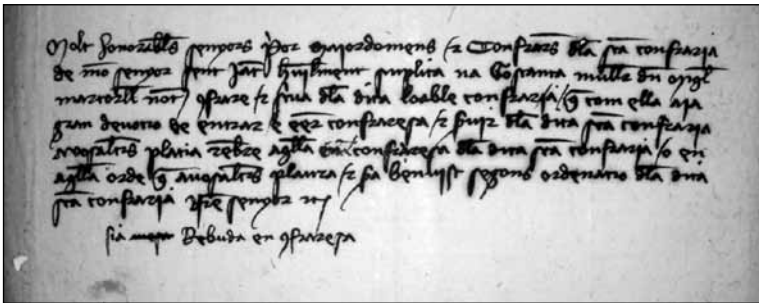 Molt honorables senyors Prior majordomens e Confrares dla sta confraria
de mo senyor sent Jac humilment suplica na Costança muller dn
martorell not confrare e scrua dla dita loable confraria q com ella aja
gran devocio de entrar e eer confraresa e seruir dla dita sta confraria
avosaltres placia rebre aqlla en confraresa dla dita sta confraria o en
aqlla orde q avosaltres plaura e sia ben vist segons ordenacio dla dita
sta confraria senyor etc
sia Rebuda en confraresa